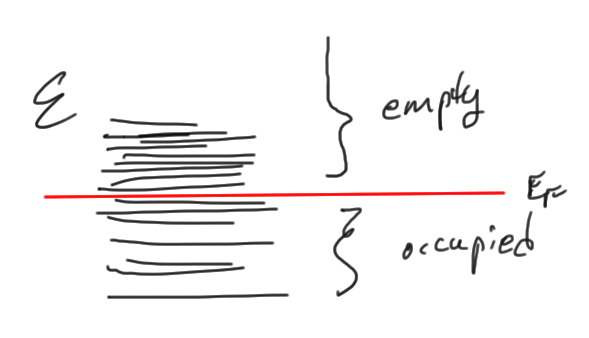 ε
empty
E_F
occupied